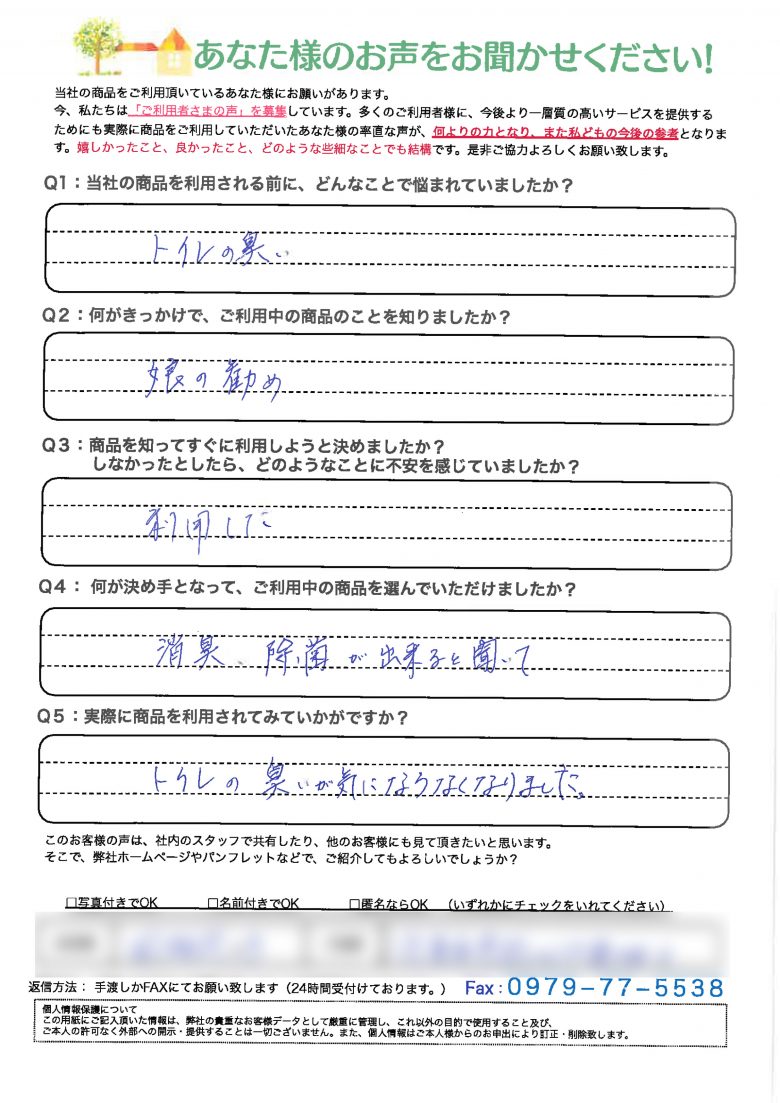 あなた様のお声をお聞かせください!
当社の商品をご利用頂いているあなた様にお願いがあります。
今、私たちは「ご利用者さまの声」を募集しています。多くのご利用者様に、今後より一層質の高いサービスを提供する
ためにも実際に商品をご利用していただいたあなた様の率直な声が、何よりの力となり、また私どもの今後の参考となりま
す。嬉しかったこと、良かったこと、どのような些細なことでも結構です。是非ご協力よろしくお願い致します。
Q1：当社の商品を利用される前に、どんなことで悩まれていましたか？
トイレの臭い
Q2：何がきっかけで、ご利用中の商品のことを知りましたか？
娘の勧め
Q3：商品を知ってすぐに利用しようと決めましたか？
しなかったとしたら、どのようなことに不安を感じていましたか？
利用した
Q4：何が決め手となって、ご利用中の商品を選んでいただけましたか？
消臭、除菌が出来ると聞いて
Q5：実際に商品を利用されてみていかがですか？
トイレの臭いが気にならなくなりました。
このお客様の声は、社内のスタッフで共有したり、他のお客様にも見て頂きたいと思います。
そこで、弊社ホームページやパンフレットなどで、ご紹介してもよろしいでしょうか？
□写真付きでOK □名前付きでOK □匿名ならOK （いずれかにチェックをいれてください）
返信方法： 手渡しかFAXにてお願い致します（24時間受付けております。） Fax：0979-77-5538
個人情報保護について
この用紙にご記入頂いた情報は、弊社の貴重なお客様データとして厳重に管理し、これ以外の目的で使用すること及び、
ご本人の許可なく外部への開示・提供することは一切ございません。また、個人情報はご本人様からのお申出により訂正・削除致します。